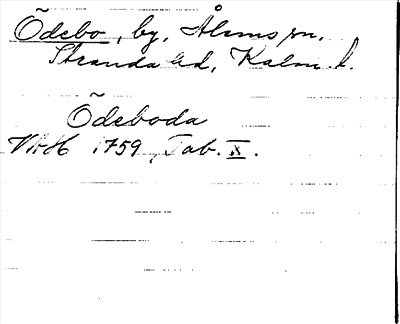 Ödebo, by, Ålems sn,
Stranda hd, Kalm. l.
Ödeboda
VAH 1759, Tab. X.